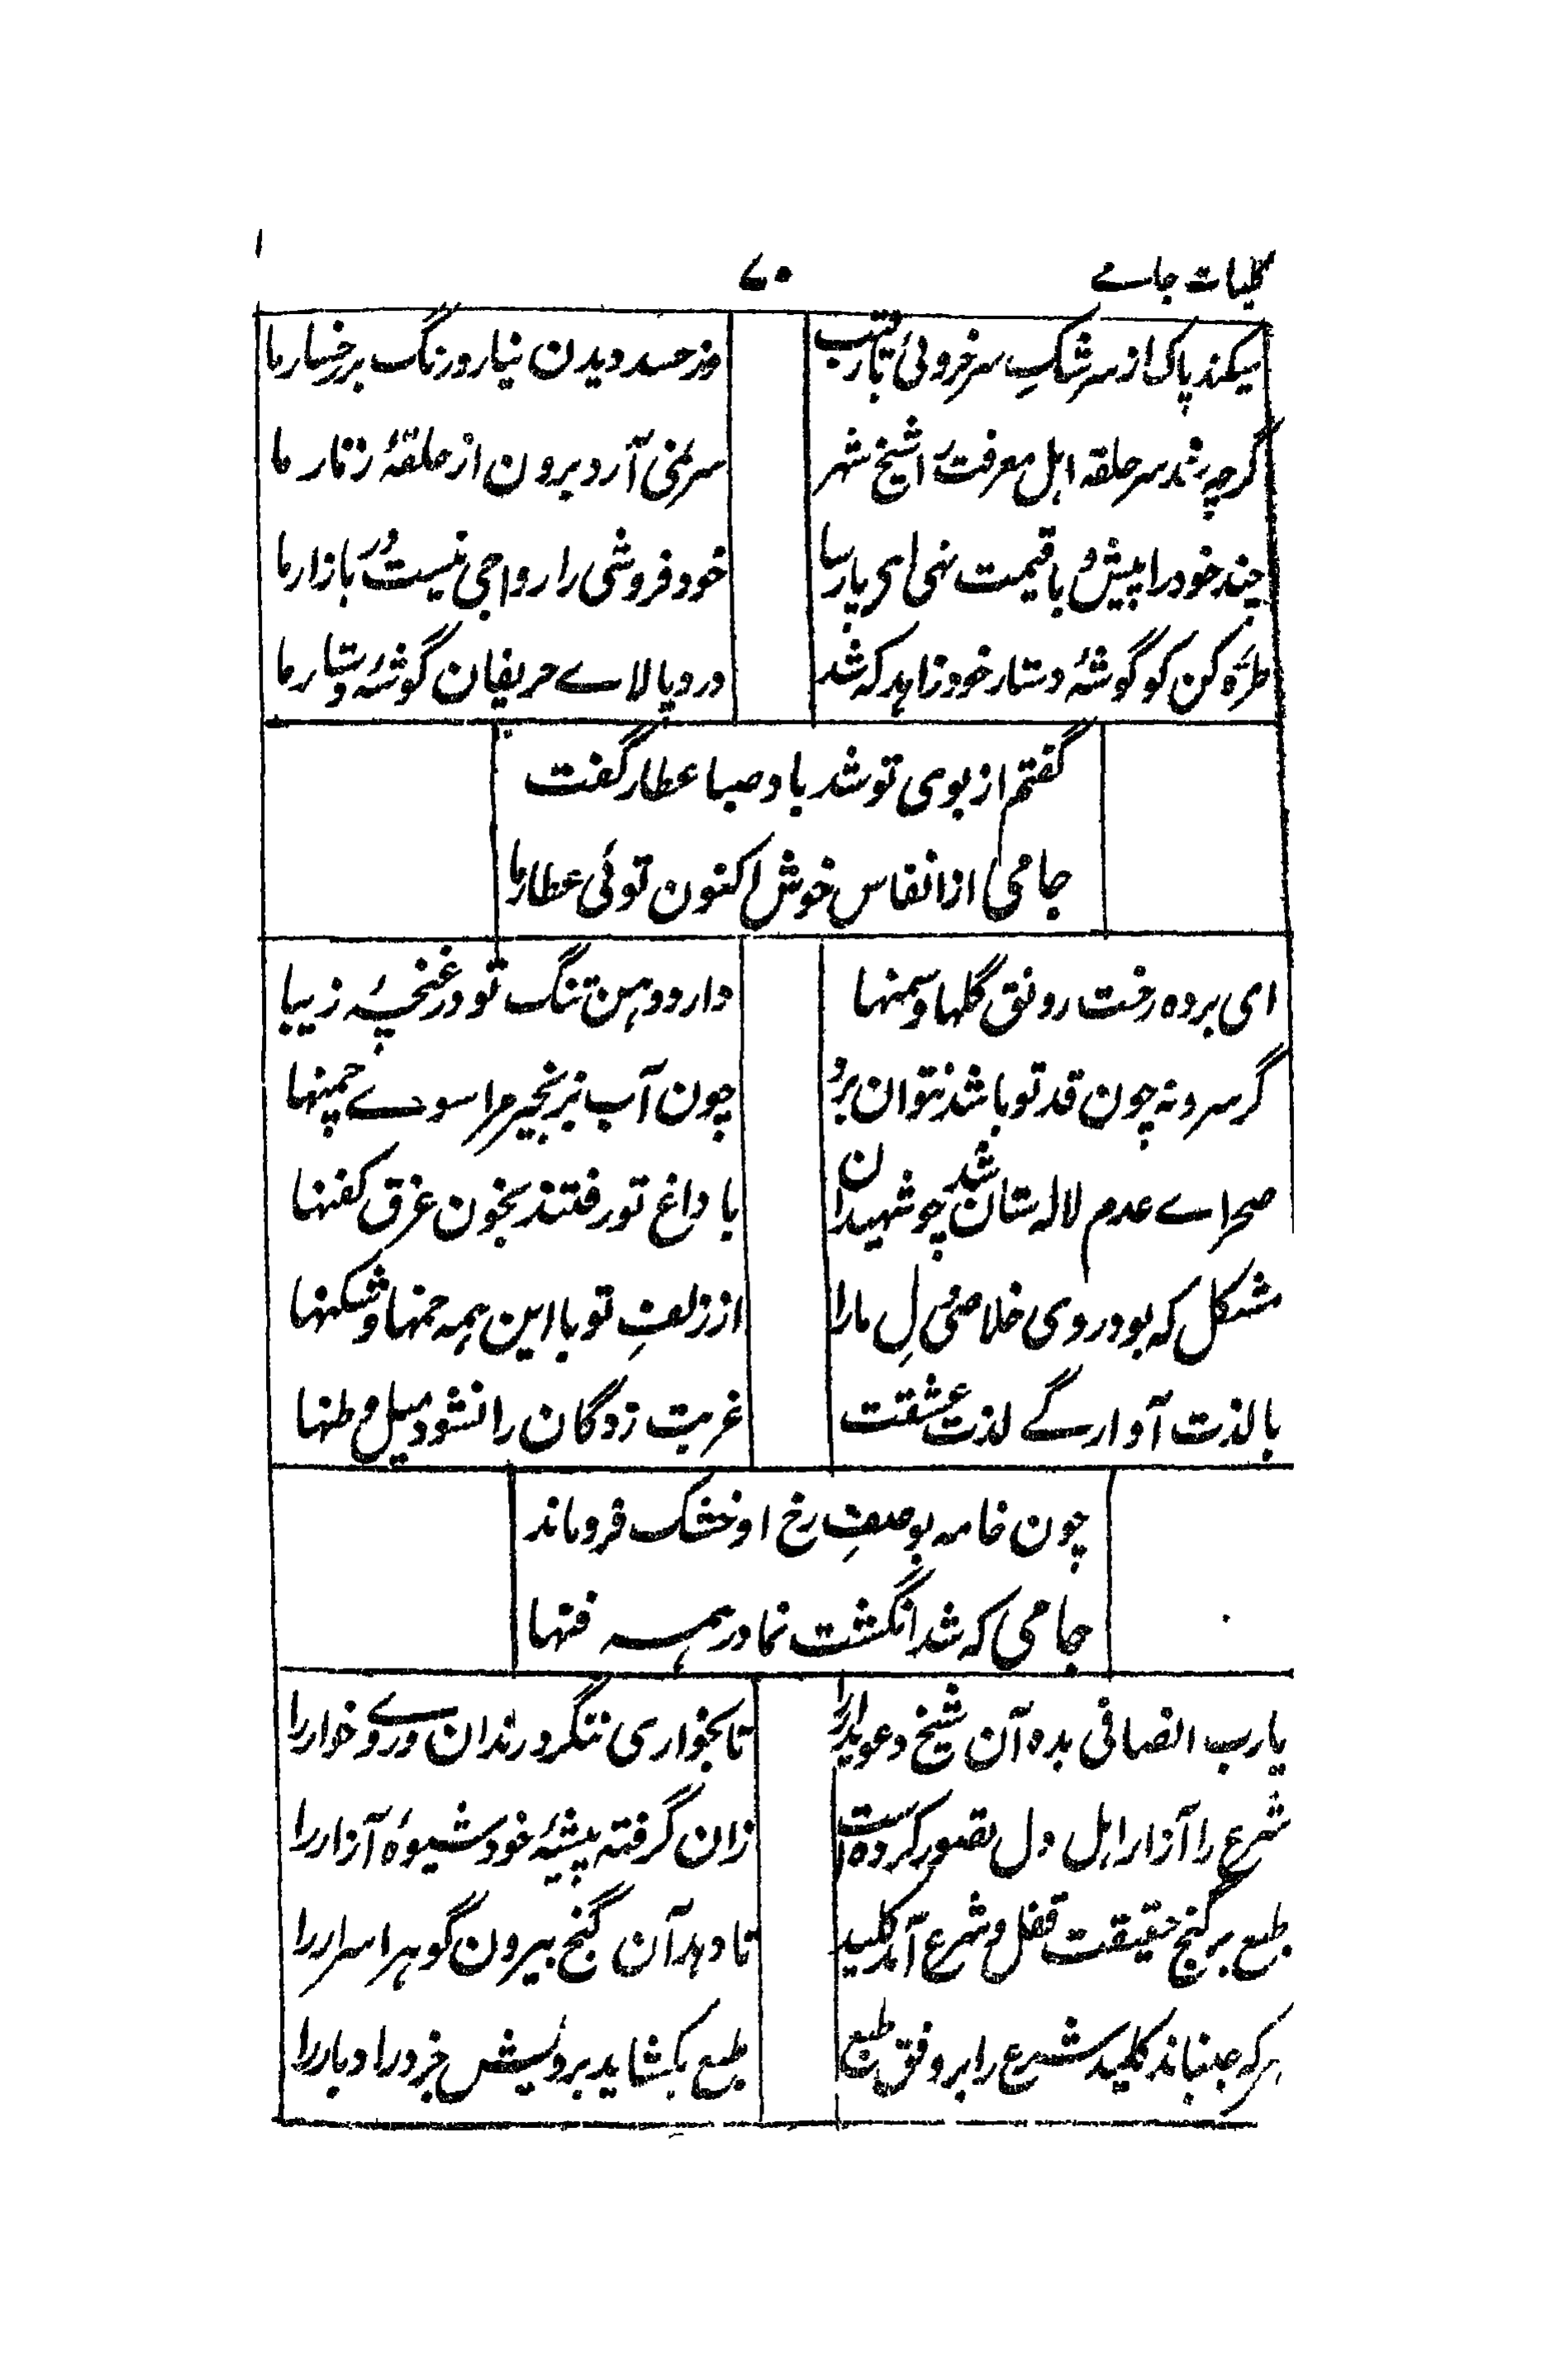 کلیات جامے
۷۰
میکند پاک از سرشکِ سرخروئی تا رقیب
وز حسد دیدن نیارد رنگ بر رخسار ما
گرچه شد سر حلقه اہل معرفت را شیخ شہر
سر نمی آرد برون از حلقۂ زنار ما
چند خود را پیش و با قیمت نہی ای پارسا
خود فروشی را رواجی نیست در بازار ما
طرّه کن کو گوشۂ دستار خود زاہد که شد
درد پالاے حریفان گوشۂ دستار ما
گفتم از بوی تو شد باد صبا عطار گفت
جامی از انفاس خوش اکنون توئی عطار ما
ای برده رخت رونق گلہا و سمنہا
دارد دہن تنگ تو در غنچۂ زیبا
گر سرو نه چون قد تو باشد نتوان برد
چون آب بزنجیر مرا سوے چمنہا
صحراے عدم لاله ستان شد چو شہیدان
با داغ تو رفتند بخون غرق کفنہا
مشکل که بود روی خلاصی دلِ ما را
از زلفِ تو با این ہمه خمہا و شکنہا
با لذت آوارگے لذت عشقت
غربت زدگان را نشود میل وطنہا
چون خامه بوصفِ رخ او خشک فروماند
جامی که شد انگشت نما در ہمه فنہا
یارب انصافی بده آن شیخ دعویدار را
تا بخواری ننگرد رندان دردے خوار را
شرع را آزار اہل دل تصور کرده است
زان گرفته پیشۂ خود شیوۂ آزار را
طبع بر گنج حقیقت قفل و شرع آمد کلید
تا دہد آن گنج بیرون گوہر اسرار را
ہر که جنباند کلید شرع را بر وفق طبع
طبع بکشاید برویش خرد را دبار را